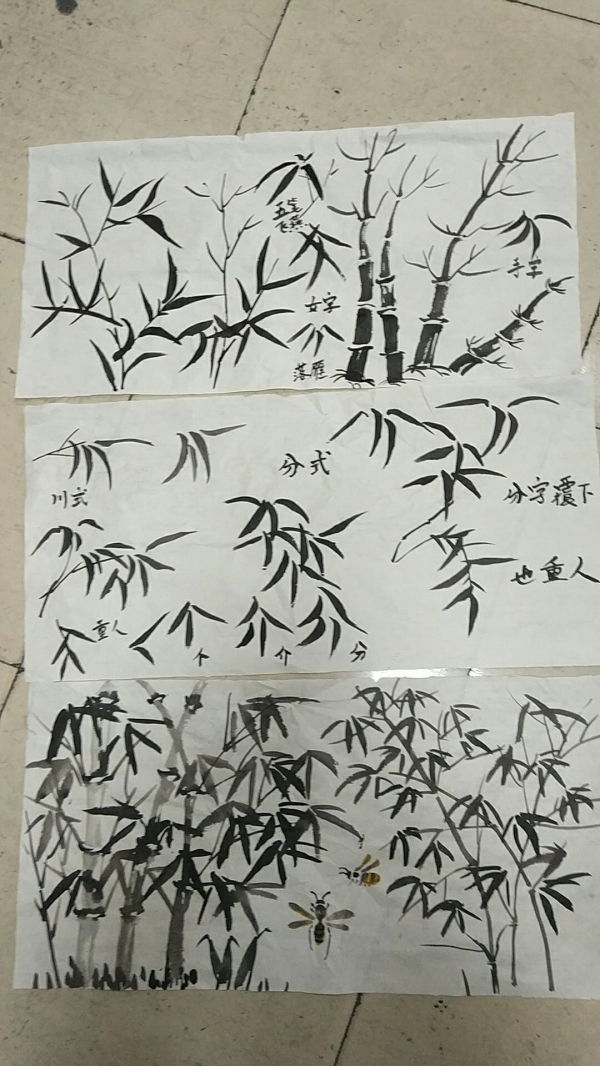 五笔
飞燕
女字
落雁
手竿
川式
分式
分字覆下
也重人
重人
个
介
分